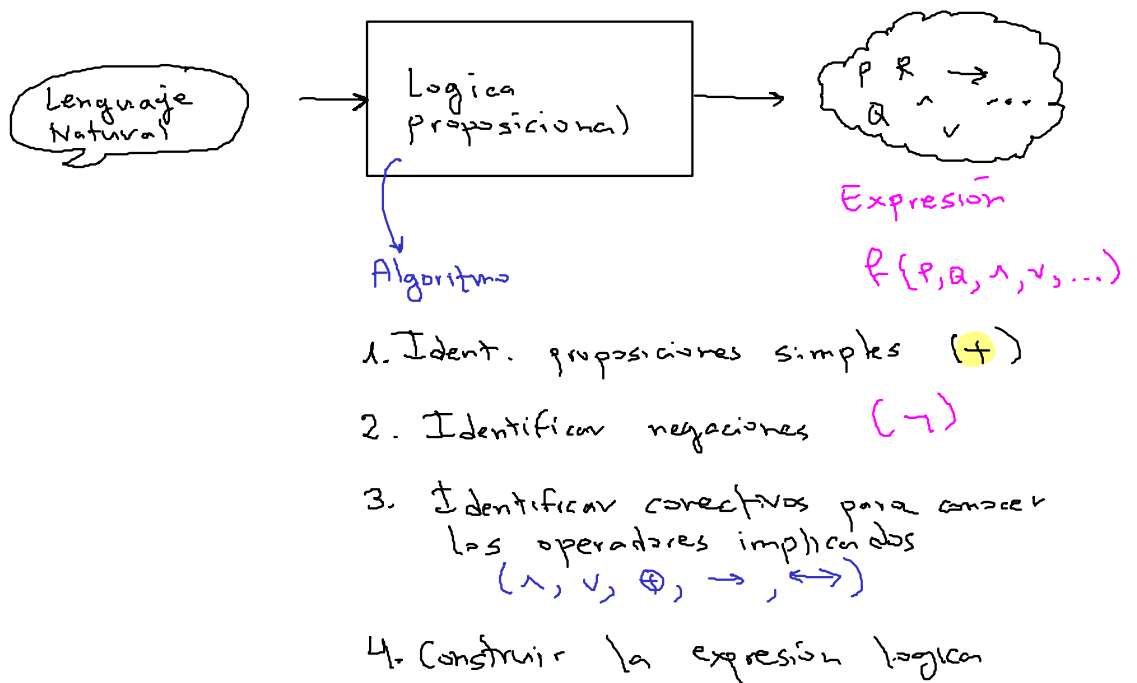 Lenguaje
Natural
Logica
proposicional
P R →
Q ∧ ...
∨
Expresión
f{P,Q,∧,∨,...)
Algoritmo
1. Ident. proposiciones simples (+)
2. Identificar negaciones (¬)
3. Identificar conectivos para conocer
los operadores implicados
(∧, ∨, ⊕, →, ↔)
4. Construir la expresión logica